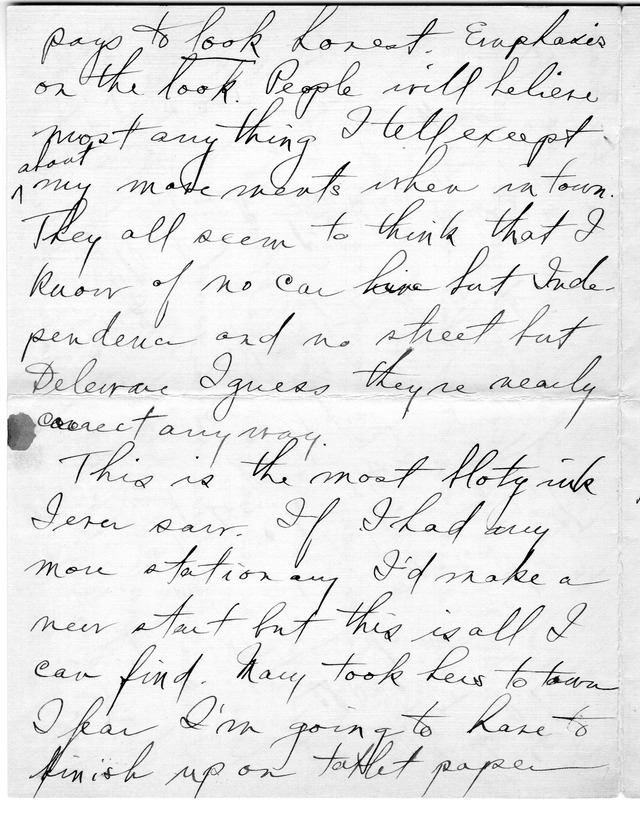 pays to look honest. Emphasis
on the look. People will believe
most anything I tell except
about
my movements when in town.
They all seem to think that I
know of no car line but Inde-
pendence and no street but
Deleware I guess they're nearly
correct anyway.
This is the most bloty ink
I ever saw. If I had any
more stationary I'd make a
new start but this is all I
can find. Mary took hers to town
I fear I'm going to have to
finish up on tablet paper